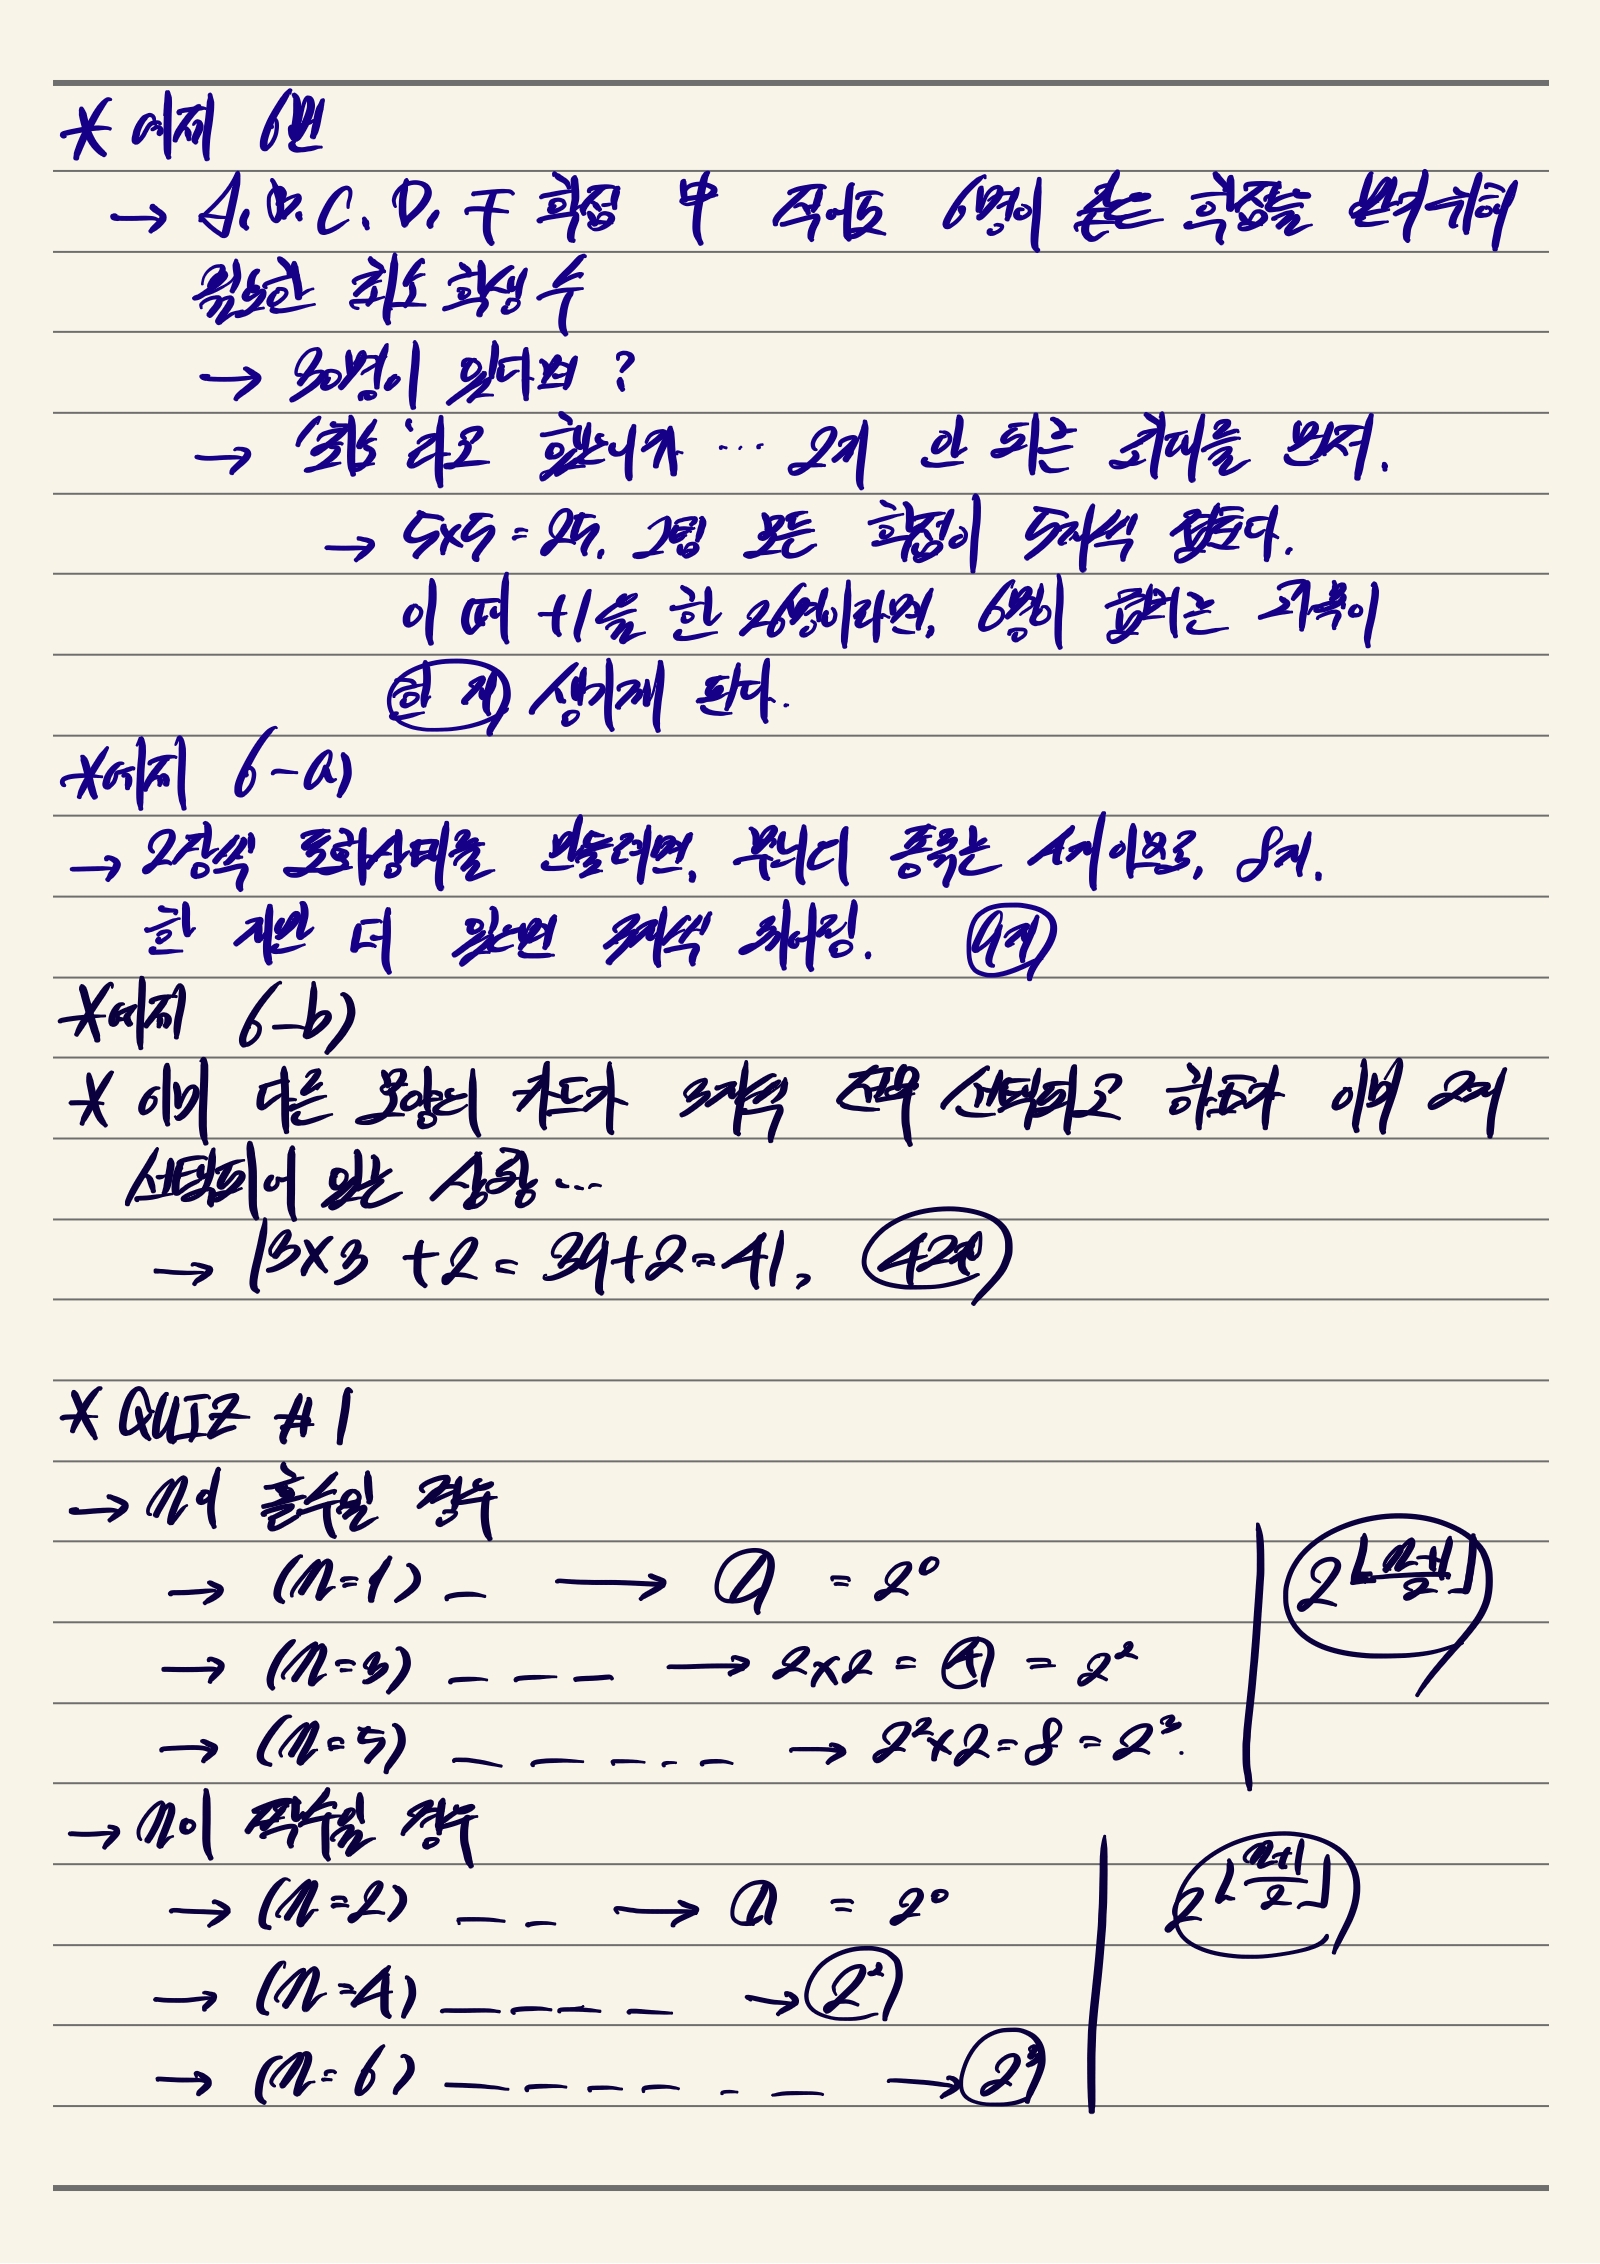 * 예제 6번
→ A, B, C, D, F 학점 中 적어도 6명이 같은 학점을 받기 위해
필요한 최소 학생 수
→ 30명이 있다면?
→ '최소'라고 했으니까 … 2개 안 되는 최대를 먼저.
→ 5x5 = 25. 그럼 모든 학점이 5개씩 겹친다.
이 때 +1을 한 26명이라면, 6명이 겹치는 과목이
한 개 생기게 된다.
*예제 6-a)
→ 2장씩 포화상태를 만들려면, 무늬의 종류는 4개이므로, 8개.
한 개만 더 있으면 3개씩 취어링. 9개
*예제 6-b)
* 이미 다른 모양의 카드가 3개씩 전부 선택되고 하트가 이미 2개
선택되어 있는 상황…
→ 13x3 + 2 = 39+2=41, 42개
* QUIZ #1
→ n이 홀수일 경우
→ (n=1) _ → 1 = 2⁰
→ (n=3) _ _ _ → 2x2 = 4 = 2²
→ (n=5) _ _ _ _ _ → 2²x2=8=2³.
2^⌊(n+1)/2⌋
→ n이 짝수일 경우
→ (n=2) _ _ → 1 = 2⁰
→ (n=4) _ _ _ _ → 2²
→ (n=6) _ _ _ _ _ _ → 2³
2^⌊(n+1)/2⌋